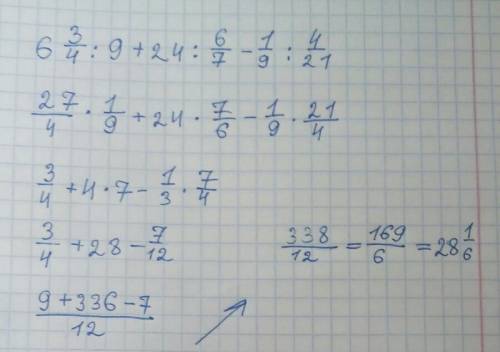 6 3/4 : 9 + 24 : 6/7 - 1/9 : 4/21
27/4 · 1/9 + 24 · 7/6 - 1/9 · 21/4
3/4 + 4 · 7 - 1/3 · 7/4
3/4 + 28 - 7/12
9 + 336 - 7/12
338/12 = 169/6 = 28 1/6